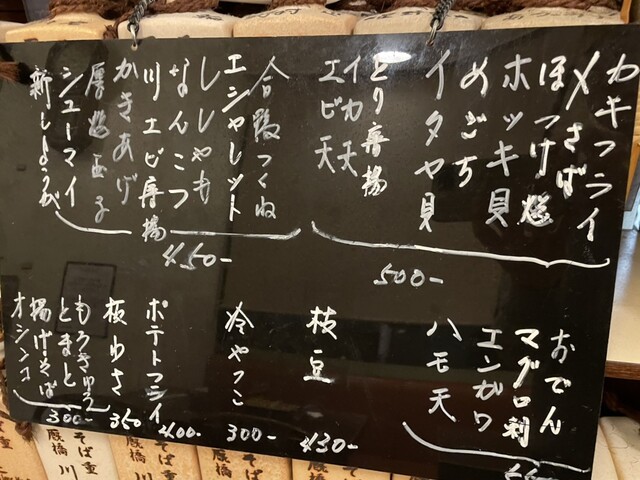 カキフライ
〆さば
ほっけ焼
ホッキ貝
めごち
イタヤ貝
とり唐揚
イカ天
エビ天
500-
合鴨つくね
エシャレット
ししゃも
なんこつ
川エビ唐揚
かきあげ
厚焼玉子
シューマイ
新しょうが
450-
おでん
マグロ刺
エンガワ
ハモ天
枝豆
430-
冷やっこ
300-
ポテトフライ
400-
板わさ
350
もろきゅう
とまと
揚げそば
オシンコ
300-